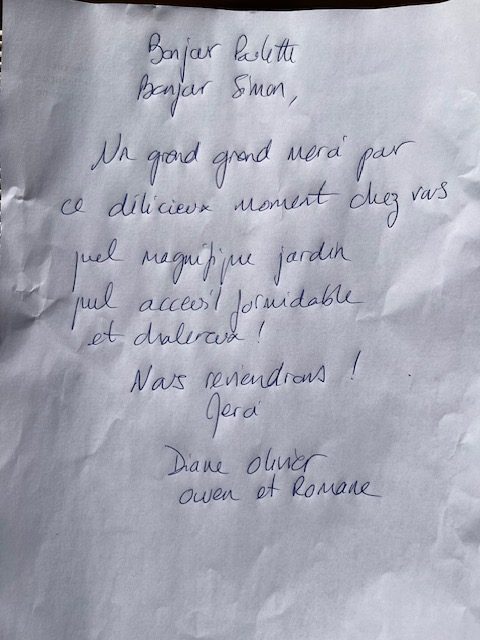 Bonjour Paulette
Bonjour Simon,
Un grand grand merci pour
ce délicieux moment chez vous
quel magnifique jardin
quel accueil formidable
et chaleureux !
Nous reviendrons !
Merci
Diane Olivier
Owen et Romane